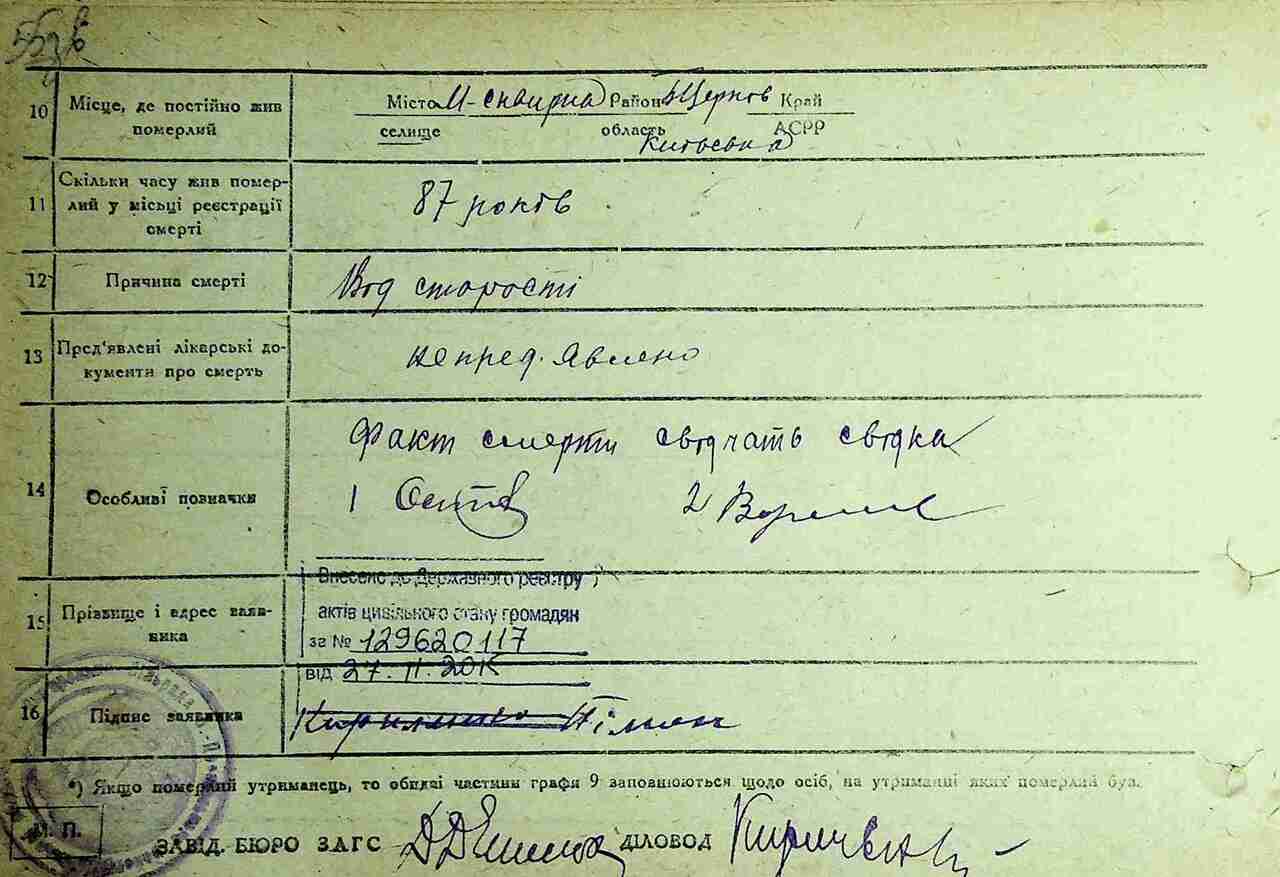 10 Місце, де постійно жив померлий
Місто М-Сквирка Район Б Церков Край
селище область АСРР
Київська
11 Скільки часу жив помер-
лий у місці реєстрації
смерті
87 років
12 Причина смерті
Від старости
13 Пред'явлені лікарські до-
кументи про смерть
не пред. явлено
14 Особливі позначки
Факт смерти свідчать свідка
1
2
15 Прізвище і адрес заяв-
ника
Внесено до Державного реєстру
актів цивільного стану громадян
за № 129620117
від 27.11.2015
16 Підпис заявника
*) Якщо померлий утриманець, то обидві частини графи 9 заповнюються щодо осіб, на утриманні яких померлий був.
М. П.
ЗАВІД. БЮРО ЗАГС ДІЛОВОД